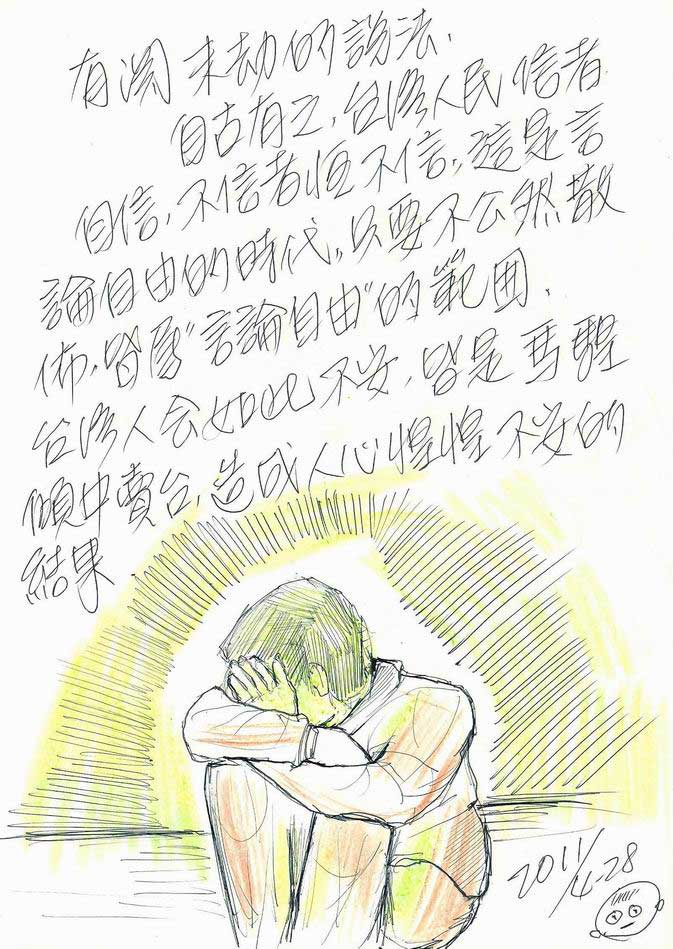 有関末劫的說法，
自古有之，台湾人民信者
自信，不信者恒不信，這是言
論自由的時代，只要不公然散
佈，皆屬"言論自由"的範囲，
台湾人会如此不安，皆是馬
傾中賣台，造成人心惶惶不安的
結果
2011/4-28